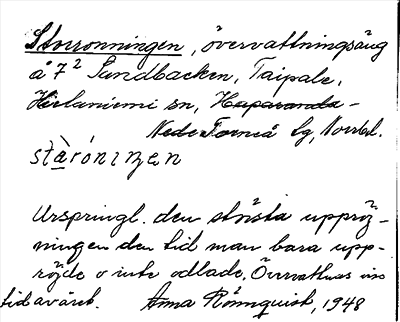 Storronningen, övervattningsäng
å 7² Sandbacken, Taipale,
Hietaniemi sn, Haparanda-
Neder Torneå tg, Norrbl.
stàrónıŋen
Urspringl. den största uppröj-
ningen den tid man bara upp-
röjde o inte odlade. Övervattnas viss
tid av året. Anna Rönnquist, 1948